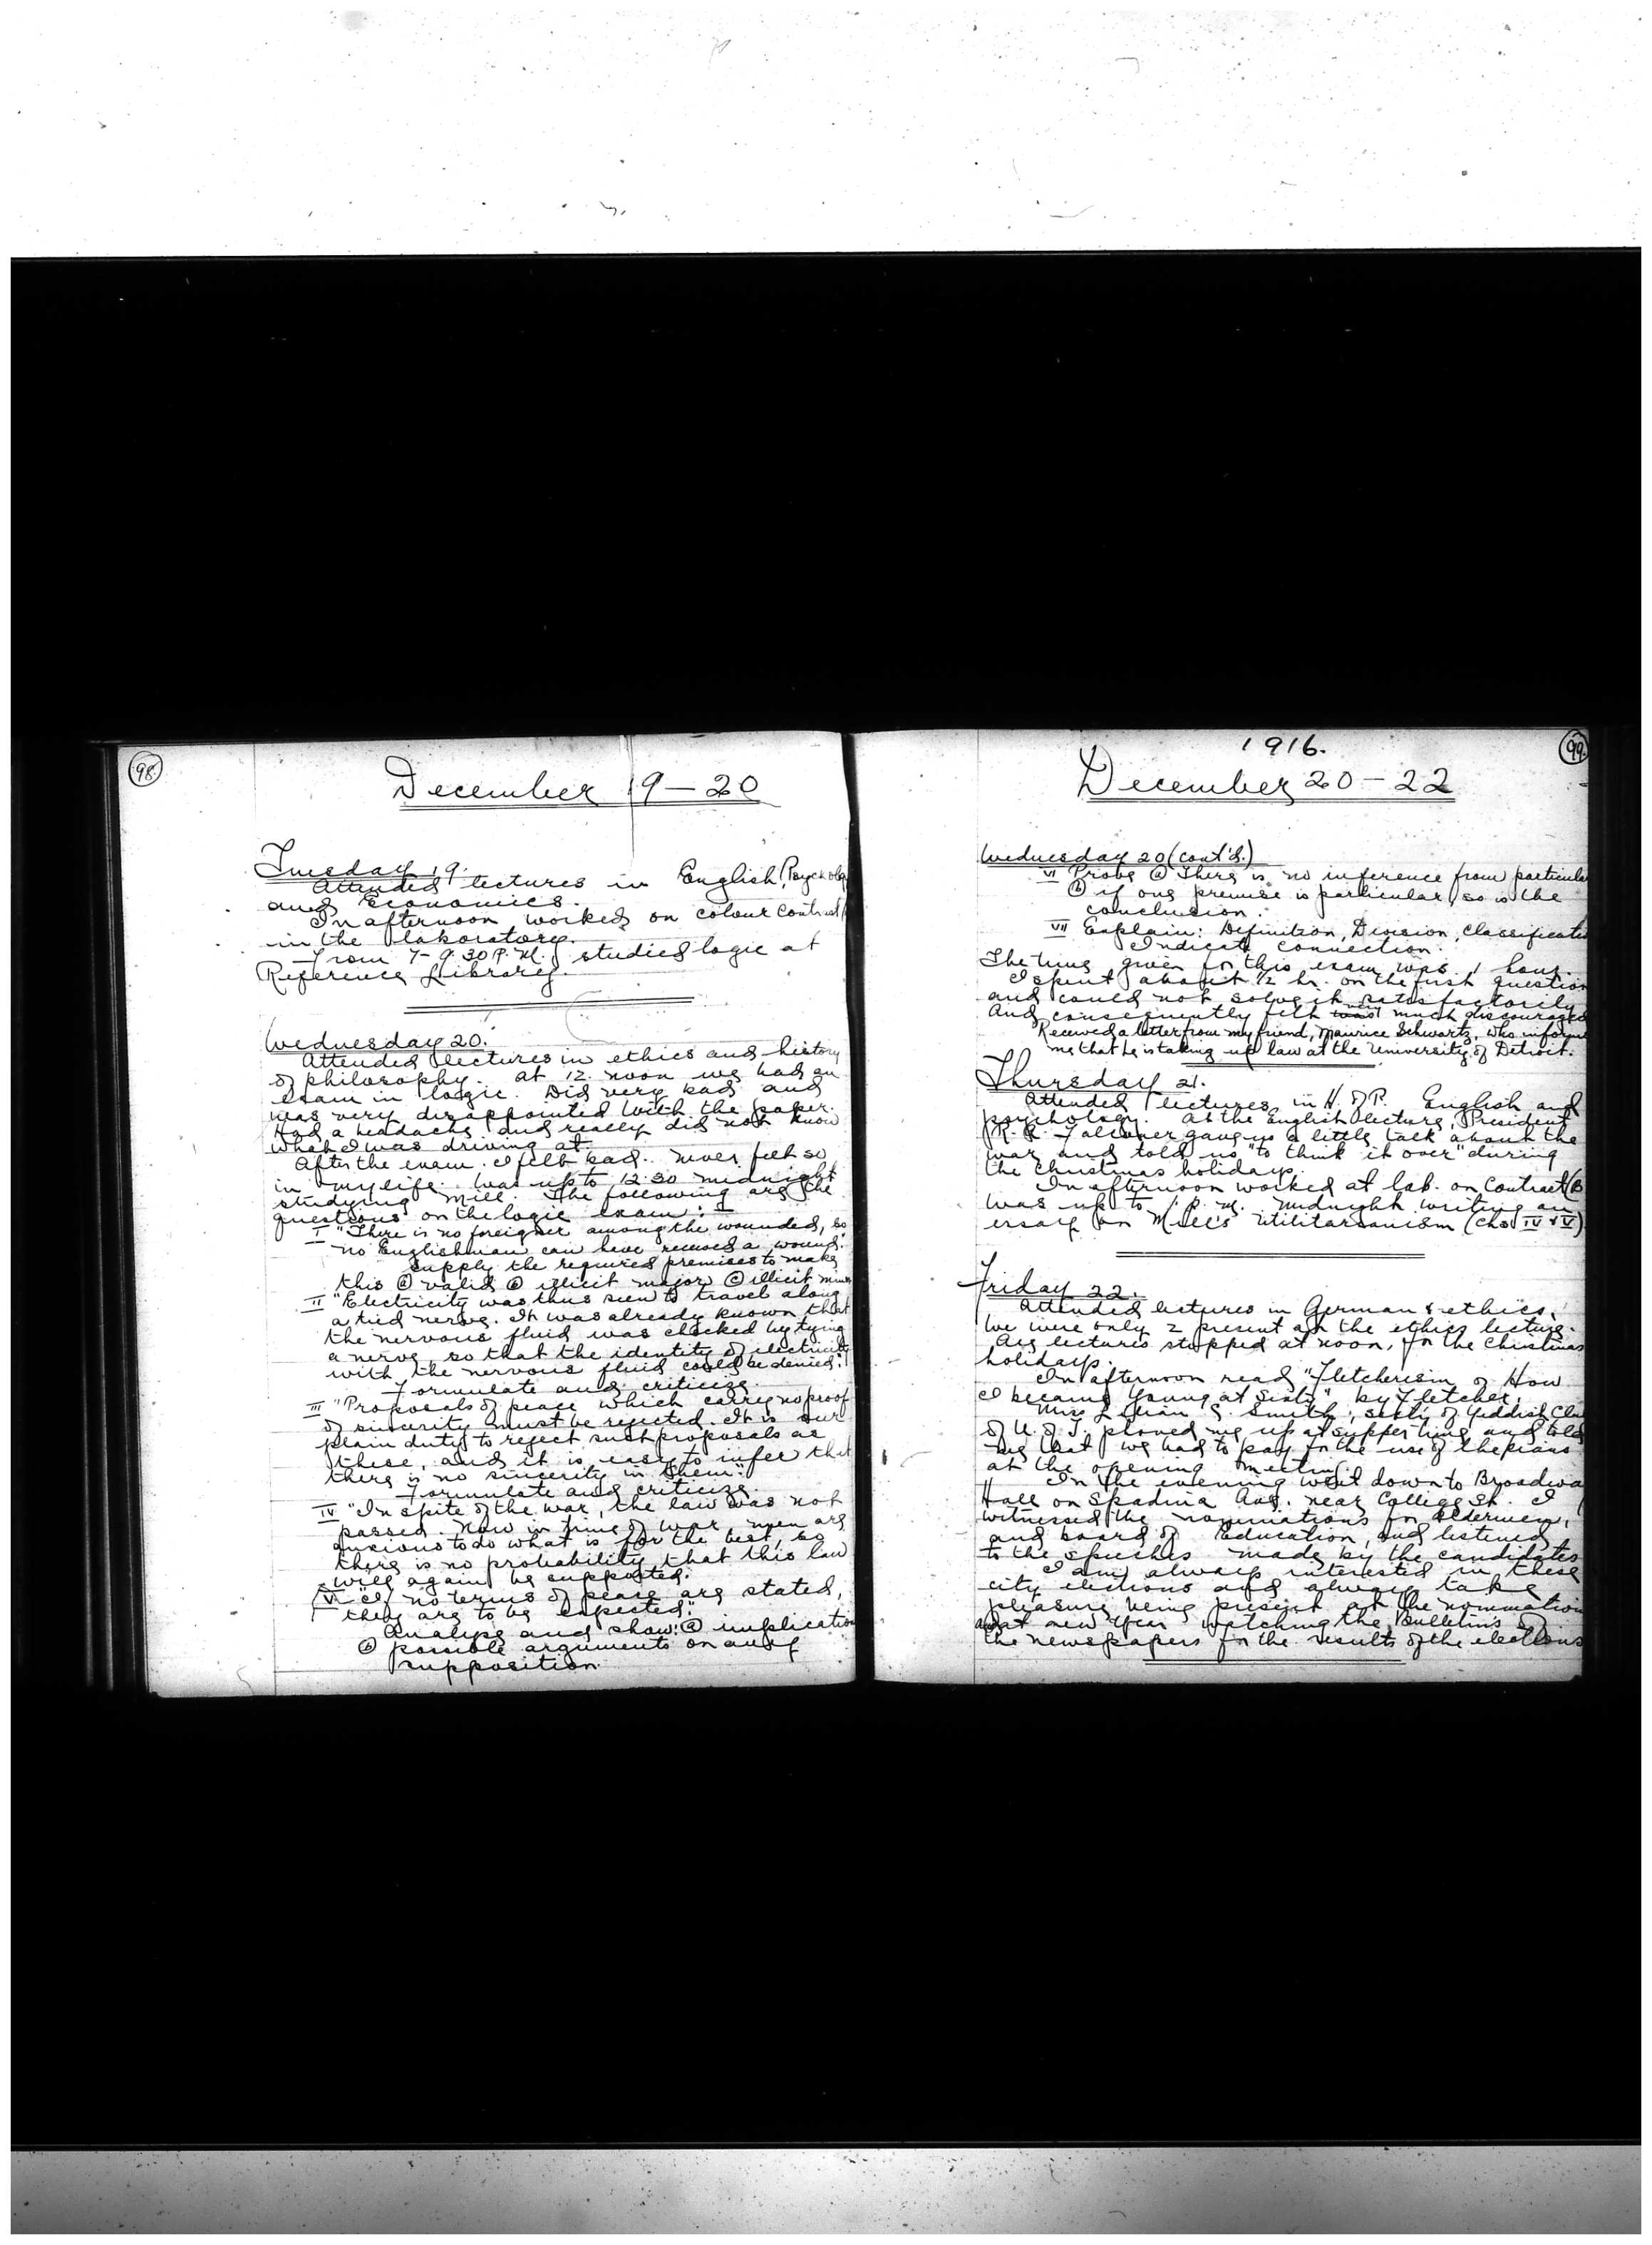 98.
December 19-20
Tuesday 19.
Attended lectures in English, Psycholog
and Economics.
In afternoon worked on colour contrast
in the laboratory.
From 7-9.30 P.M. studied logic at
Reference Library.
Wednesday 20.
Attended lectures in ethics and history
of philosophy. At 12. noon we had an
exam in logic. Did very bad and
was very disappointed with the paper.
Had a headache and really did not know
what I was driving at.
After the exam. I felt bad. Never felt so
in my life. Was up to 12.30 midnight
studying Mill. The following are the
questions on the logic exam:
I "There is no foreigner among the wounded, so
no Englishman can have received a wound."
Supply the required premises to make
this (a) valid (b) illicit major (c) illicit minor
II "Electricity was thus seen to travel along
a tied nerve. It was already known that
the nervous fluid was checked by tying
a nerve so that the identity of electricity
with the nervous fluid could be denied."
Formulate and criticize.
III "Proposals of peace which carry no proof
of sincerity must be rejected. It is our
plain duty to reject such proposals as
these, and it is easy to infer that
there is no sincerity in them."
Formulate and criticize.
IV "In spite of the war, the law was not
passed. Now in time of war men are
anxious to do what is for the best, so
there is no probability that this law
will again be supported.
V "If no terms of peace are stated,
they are to be expected."
Analyse and show: (a) implication
(b) possible arguments on any
supposition
1916.
99.
December 20-22
Wednesday 20 (cont'd.)
VI Prove (a) There is no inference from particular
(b) if one premise is particular so is the
conclusion.
VII Explain: Definition, Division, Classificatio
Indicate connection.
The time given for this exam was 1 hour.
I spent about 1/2 hr. on the first question
and could not solve it satisfactorily
and consequently felt very much discouraged
Received a letter from my friend, Maurice Schwartz, who informs
me that he is taking up law at the University of Detroit.
Thursday 21.
Attended lectures in H. of P. English and
psychology. At the English lecture, President
R. A. Falconer gave us a little talk about the
war and told us "to think it over" during
the Christmas holidays.
In afternoon worked at lab. on Contrast (B
Was up to 1 P. M. midnight writing an
essay on Mill's Utilitarianism (chs IV & V)
Friday 22.
Attended lectures in German & ethics.
We were only 2 present at the ethics lecture.
All lectures stopped at noon, for the Christmas
holidays.
In afternoon read "Fletcherism or How
I became Young at Sixty" by Fletcher.
Miss Lillian G. Smith, sec'ty of Yeddish Clu
of U. of T. phoned me up at supper time and told
me that we had to pay for the use of the piano
at the opening meeting.
In the evening went down to Broadway
Hall on Spadina Ave. near College St. I
witnessed the nominations for Aldermen,
and board of Education, and listened
to the speeches made by the candidates
I am always interested in these
city elections and always take
pleasure being present at the nomination
and at new Year watching the Bulletins of
the newspapers for the results of the elections